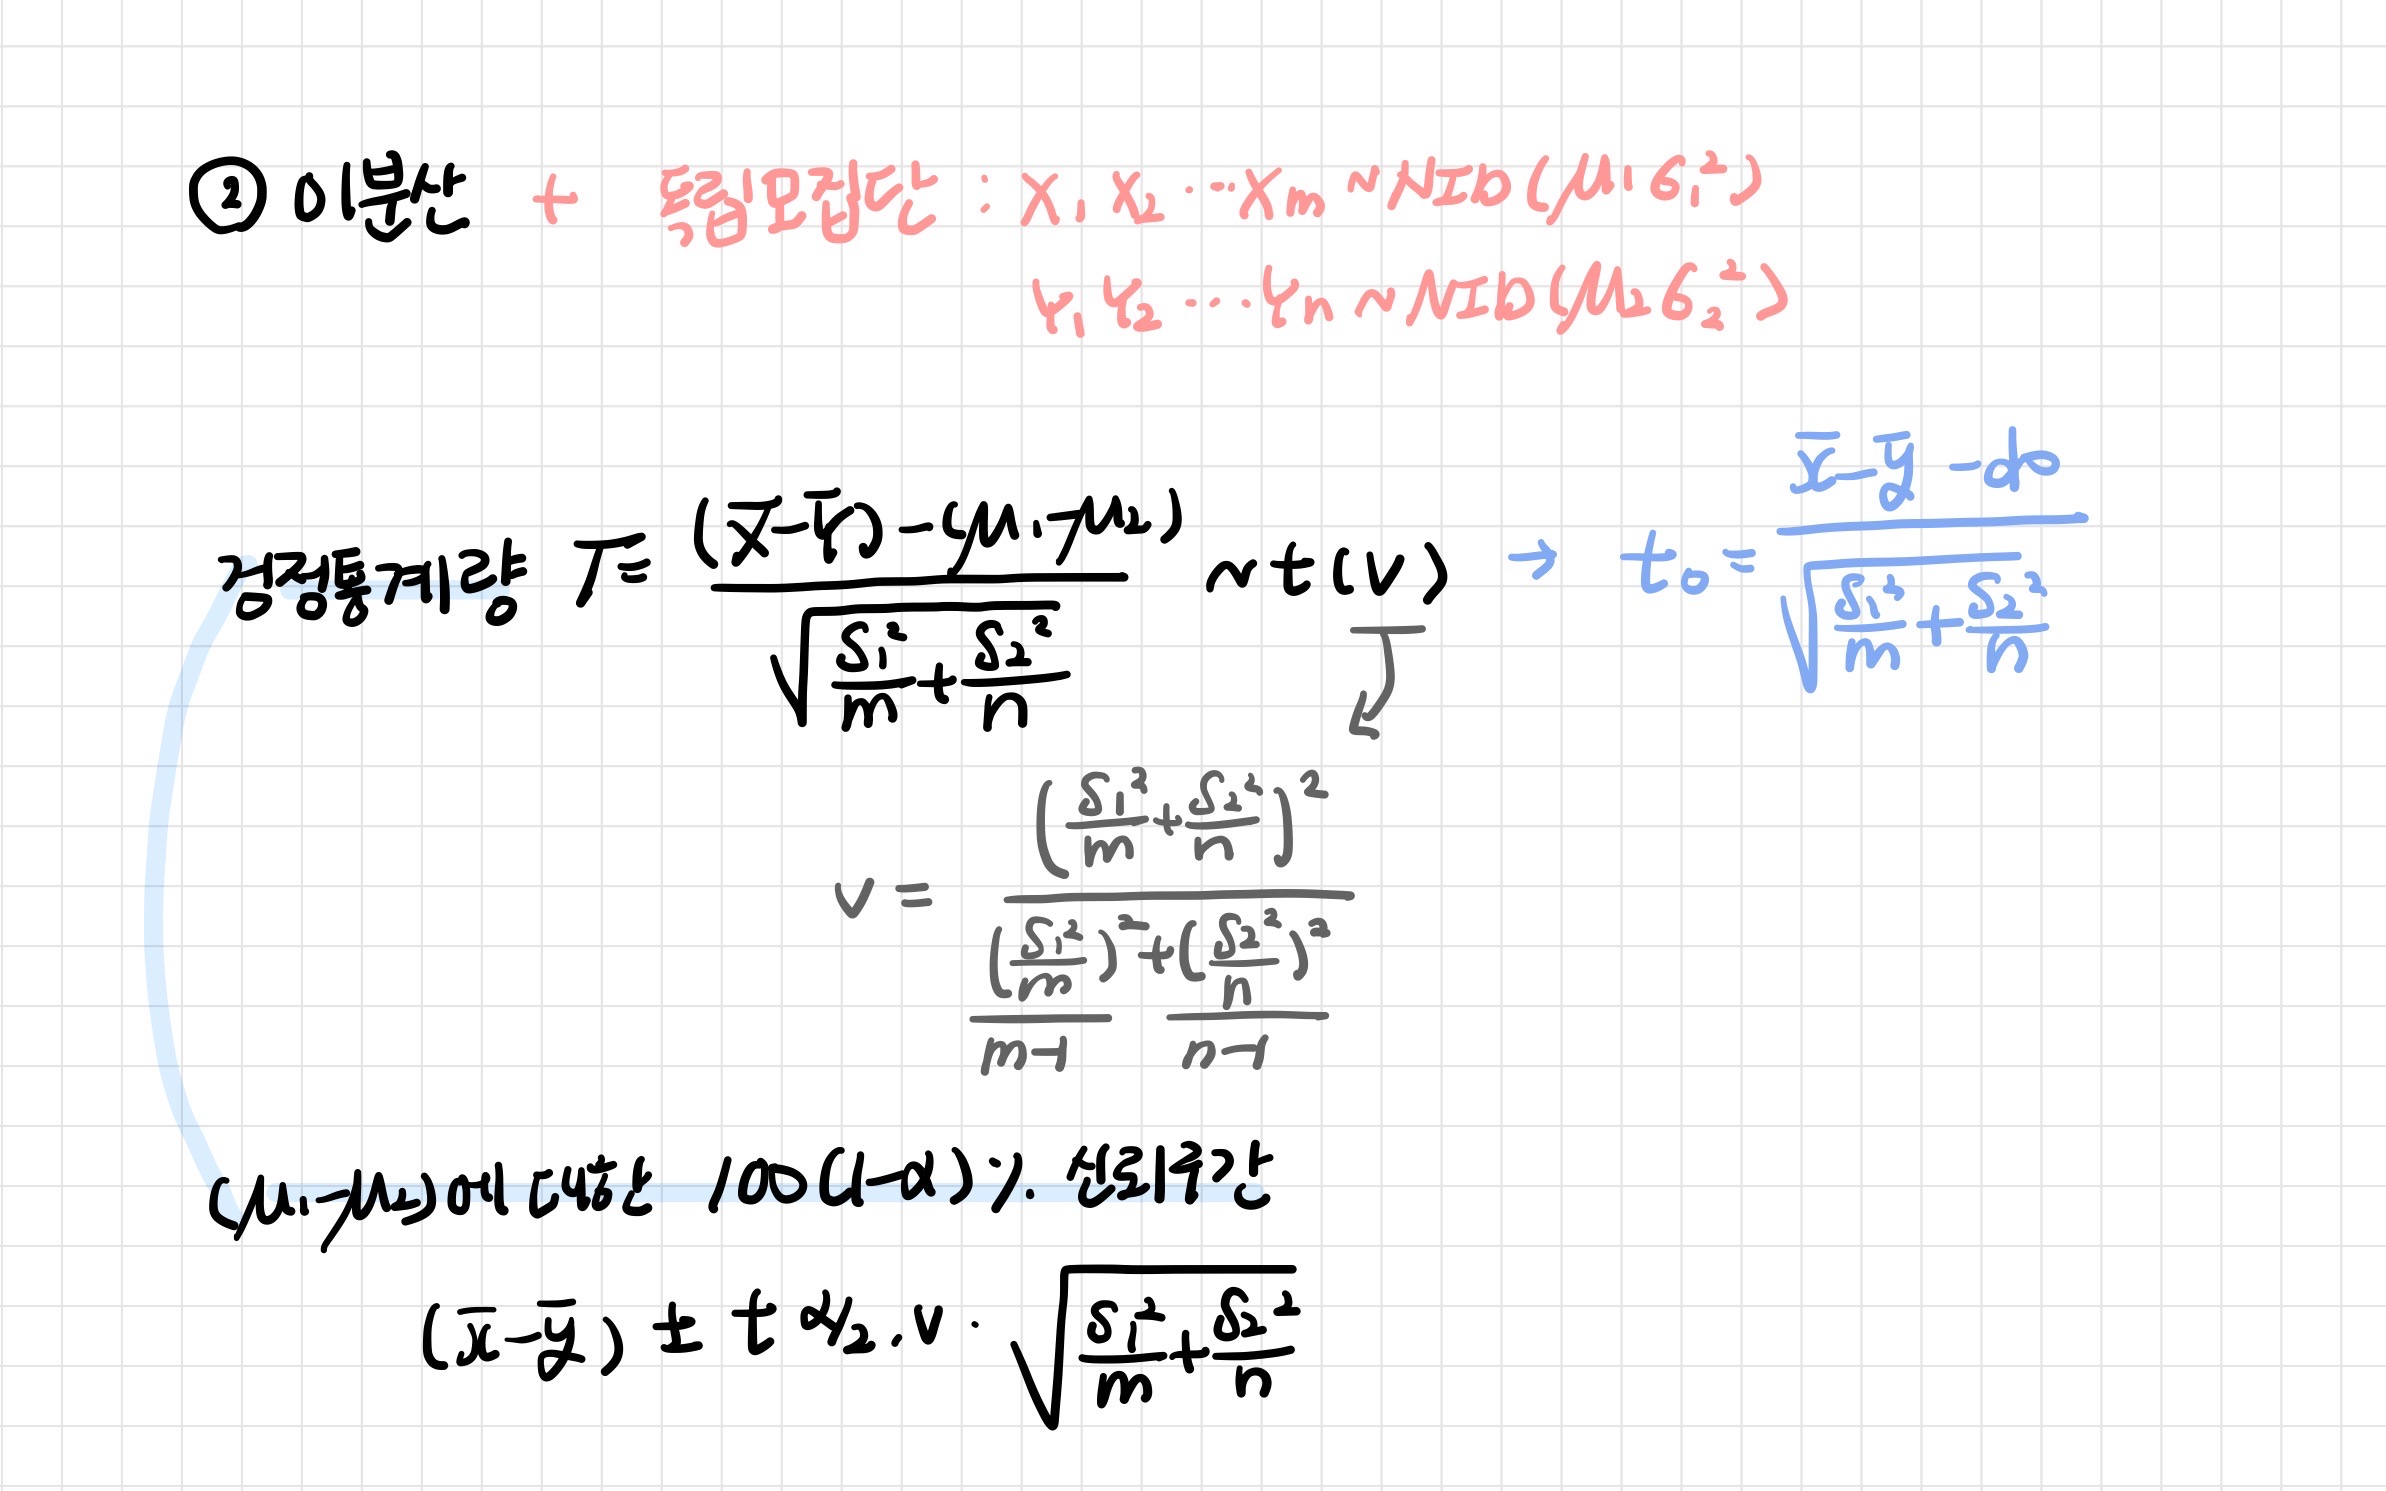 ② 이분산 + 독립표본 : X₁ X₂ … Xₘ ~ NID(μ₁ σ₁²)
Y₁ Y₂ … Yₙ ~ NID(μ₂ σ₂²)
검정통계량 T = ((X̄ - Ȳ) - (μ₁ - μ₂)) / √(S₁²/m + S₂²/n) ~ t(v) → t₀ = (x̄ - ȳ - d₀) / √(S₁²/m + S₂²/n)
v = (S₁²/m + S₂²/n)² / ((S₁²/m)²/(m-1) + (S₂²/n)²/(n-1))
(μ₁ - μ₂)에 대한 100(1-α)% 신뢰구간
(x̄ - ȳ) ± t α/2, v · √(S₁²/m + S₂²/n)